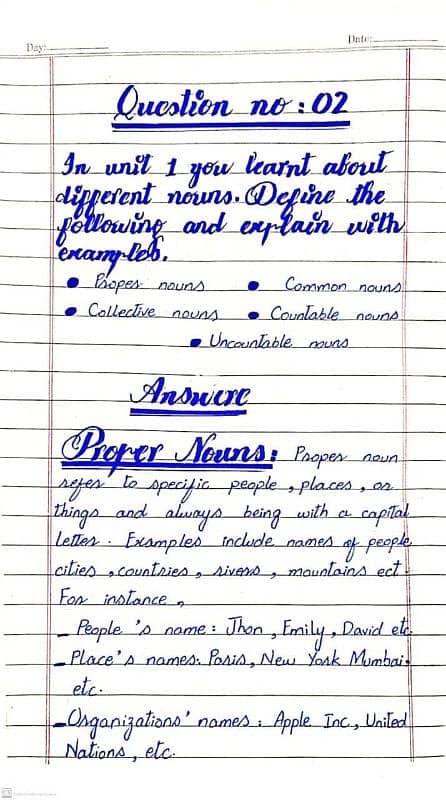 Day:
Date:
Question no : 02
In unit 1 you learnt about
different nouns. Define the
following and explain with
examples.
• Proper nouns • Common nouns
• Collective nouns • Countable nouns
• Uncountable nuns
Answere
Proper Nouns: Proper noun
refer to specific people , places , or
things and always being with a capital
letter . Examples include names of people,
cities , countries , rivers , mountains ect .
For instance ,
_ People 's name : Jhon , Emily , David etc.
_ Place's names: Paris, New York Mumbai.
etc.
_ Organizations' names : Apple Inc, United
Nations , etc.